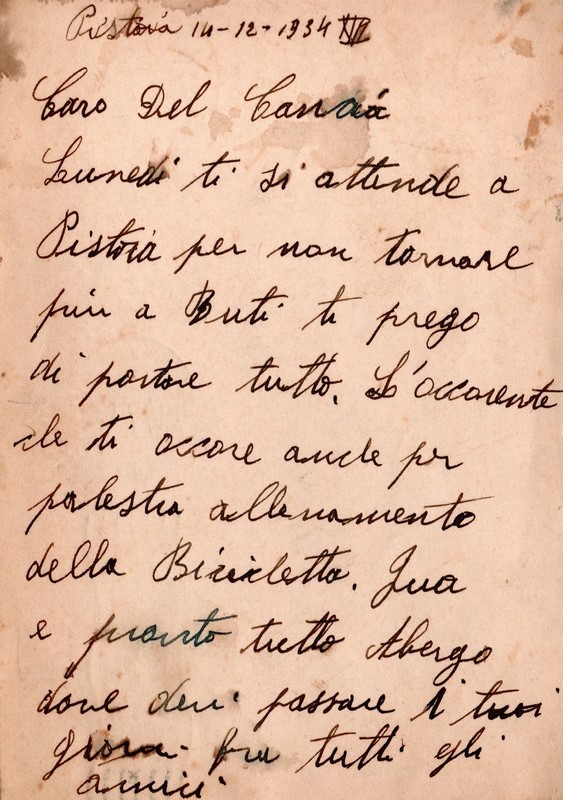 Pistoia 14-12-1934 XIII
Caro Del Cancia
Lunedi ti si attende a
Pistoia per non tornare
piu a Buti ti prego
di portare tutto. L'occorente
che ti occore anche per
palestra allenamento
della Bicicletta. Qua
e pronto tutto Abergo
dove devi passare i tuoi
giorni fra tutti gli
amici